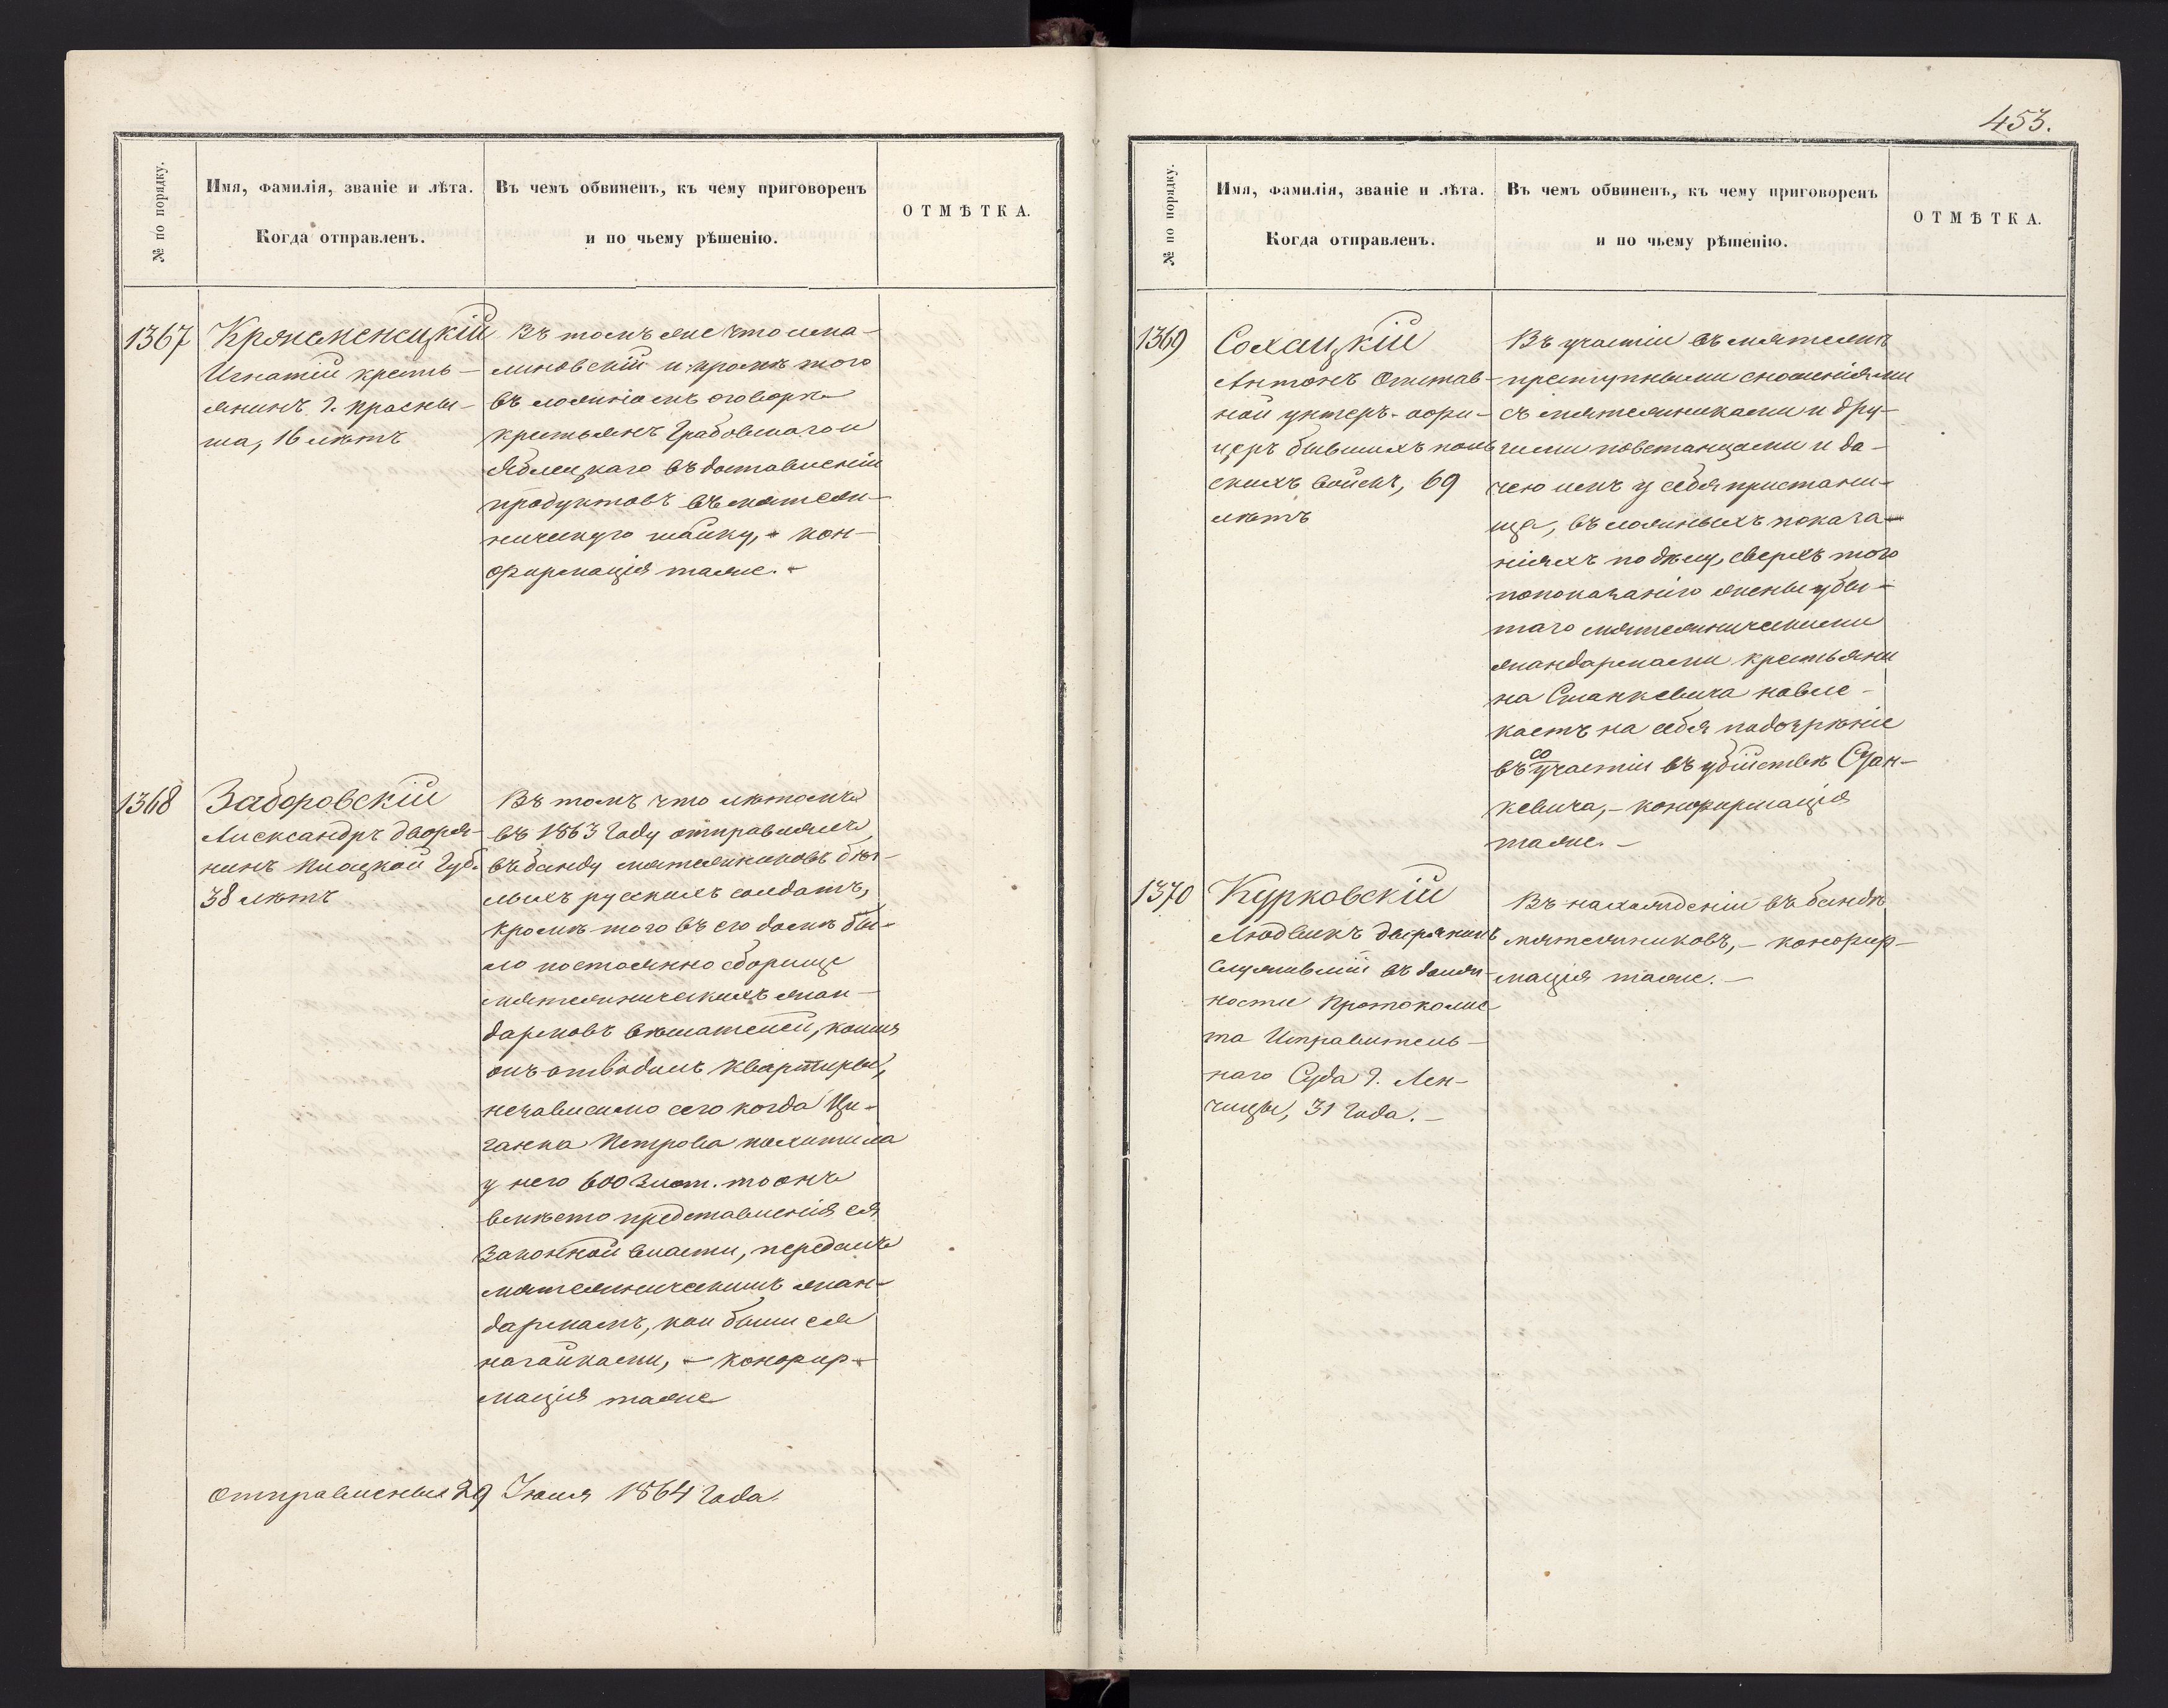 453.
№ по порядку.
Имя, фамилія, званіе и лѣта.
Когда отправленъ.
Въ чемъ обвиненъ, къ чему приговоренъ
и по чьему рѣшенію.
ОТМѢТКА.
1367
Игнатій кресть-
янинъ г. Прасны-
ша, 16 лѣтъ
Въ томъ же что
линовскій и кромѣ того
въ ложномъ оговорѣ
крестьянъ Грабовскаго и
Яблецкаго въ доставленіи
продуктовъ въ мятеж-
ническую шайку, - кон-
фирмація таже. -
1368
Заборовскій
Александръ дворя-
нинъ Плоцкой Губ.
38 лѣтъ
Въ томъ что лѣтомъ
въ 1863 году отправлялъ
въ банду мятежниковъ бѣг-
лыхъ русскихъ солдатъ,
кромѣ того въ его домѣ бы-
ло постоянно сборище
мятежническихъ жан-
дармовъ вѣшателей, коимъ
онъ отводилъ квартиры,
независимо сего когда Цы-
ганка Петрова похитила
у него 600 злот. то онъ
вмѣсто представленія ея
законной власти, передалъ
мятежническимъ жан-
дармамъ, кои били ея
нагайками, - конфир-
мація таже
Отправлены 29 Іюля 1864 года.
№ по порядку.
Имя, фамилія, званіе и лѣта.
Когда отправленъ.
Въ чемъ обвиненъ, къ чему приговоренъ
и по чьему рѣшенію.
ОТМѢТКА.
1369
Сохацкій
Антонъ Отстав-
ной унтеръ-офи-
церъ бывшихъ поль
скихъ войскъ, 69
лѣтъ
Въ участіи въ мятежѣ
преступными сношеніями
съ мятежниками и дру-
гими повстанцами и да-
чею имъ у себя пристани-
ща, въ ложныхъ показа-
ніяхъ по дѣлу, сверхъ того
по показанію жены уби-
таго мятежническими
жандармами крестьяни
на Станкевича навле-
каетъ на себя подозрѣніе
въ соучастіи въ убійствѣ Стан-
кевича, - конфирмація
таже. -
1370
Курковскій
Людвикъ дворянинъ
служившій въ долж-
ности Протоколис
та Исправитель-
наго Суда г. Лен-
чицы, 31 года. -
Въ нахожденіи въ бандѣ
мятежниковъ, - конфир-
мація таже. -